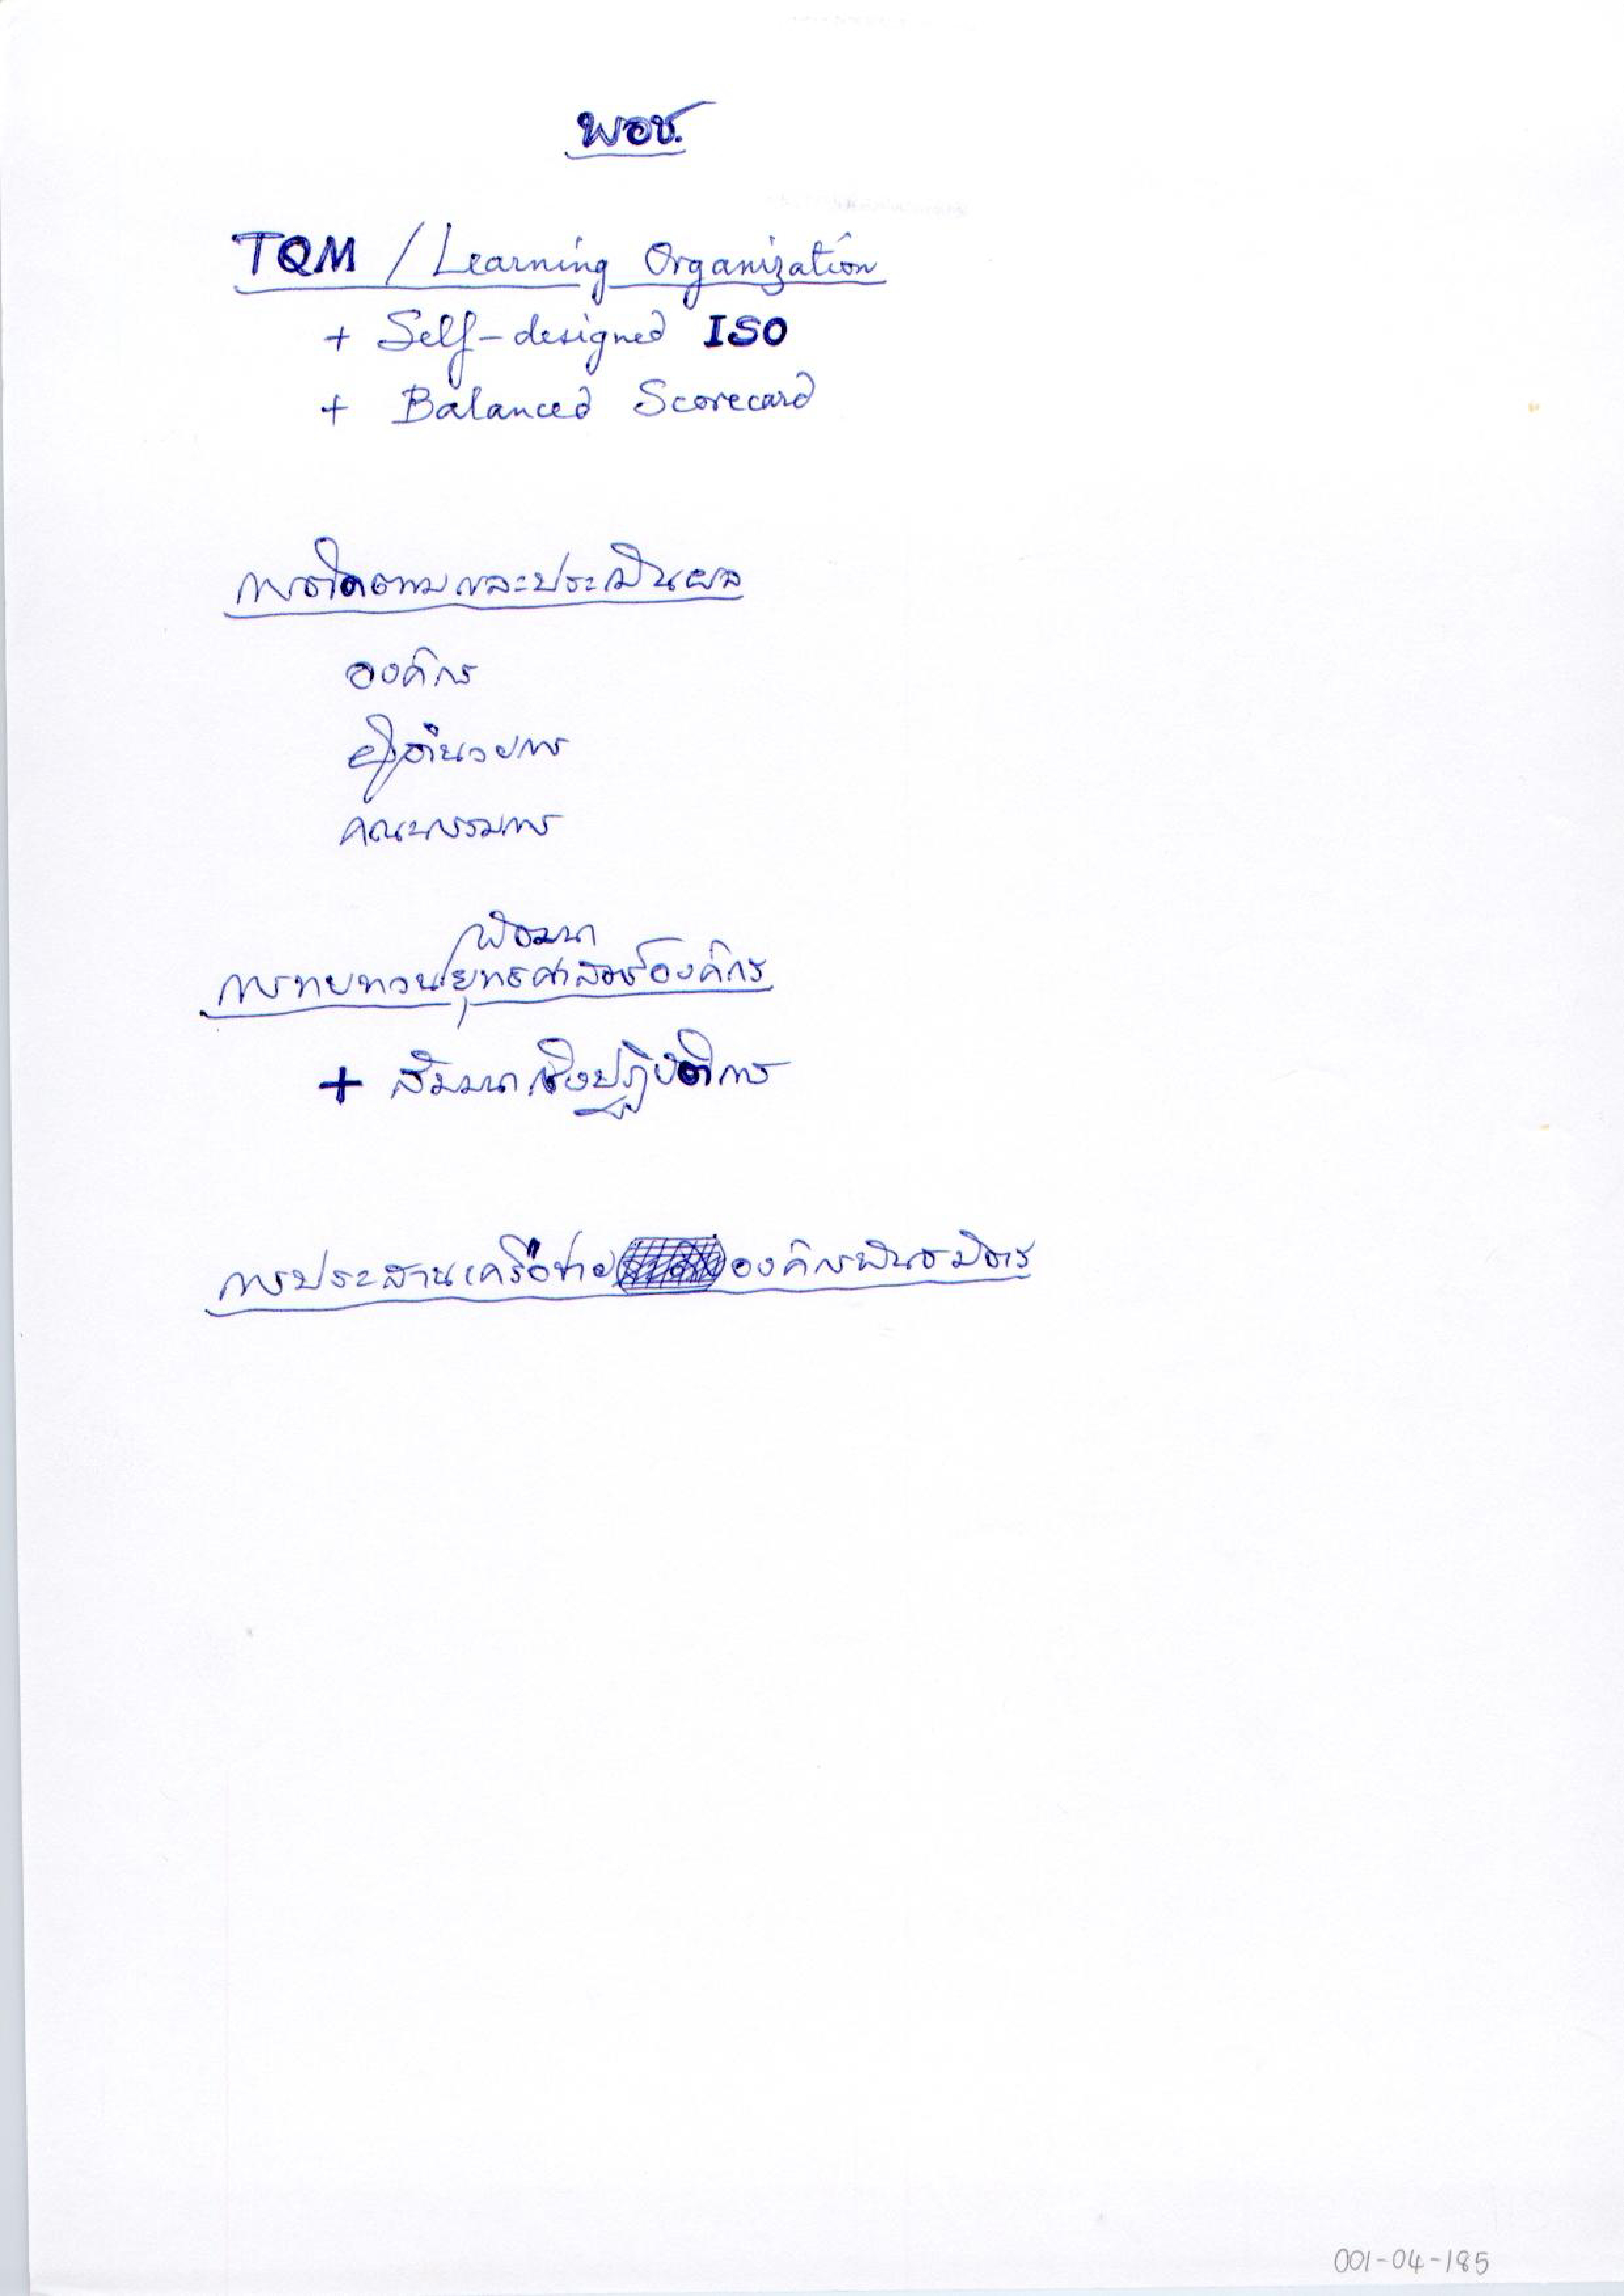 พอช.
TQM / Learning Organization
+ Self-designed ISO
+ Balanced Scorecard
การติดตามและประเมินผล
องค์กร
ผู้อำนวยการ
คณะกรรมการ
พัฒนา
การทบทวนยุทธศาสตร์องค์กร
+ สัมมนาเชิงปฏิบัติการ
การประสานเครือข่ายองค์กรพันธมิตร
001-04-185